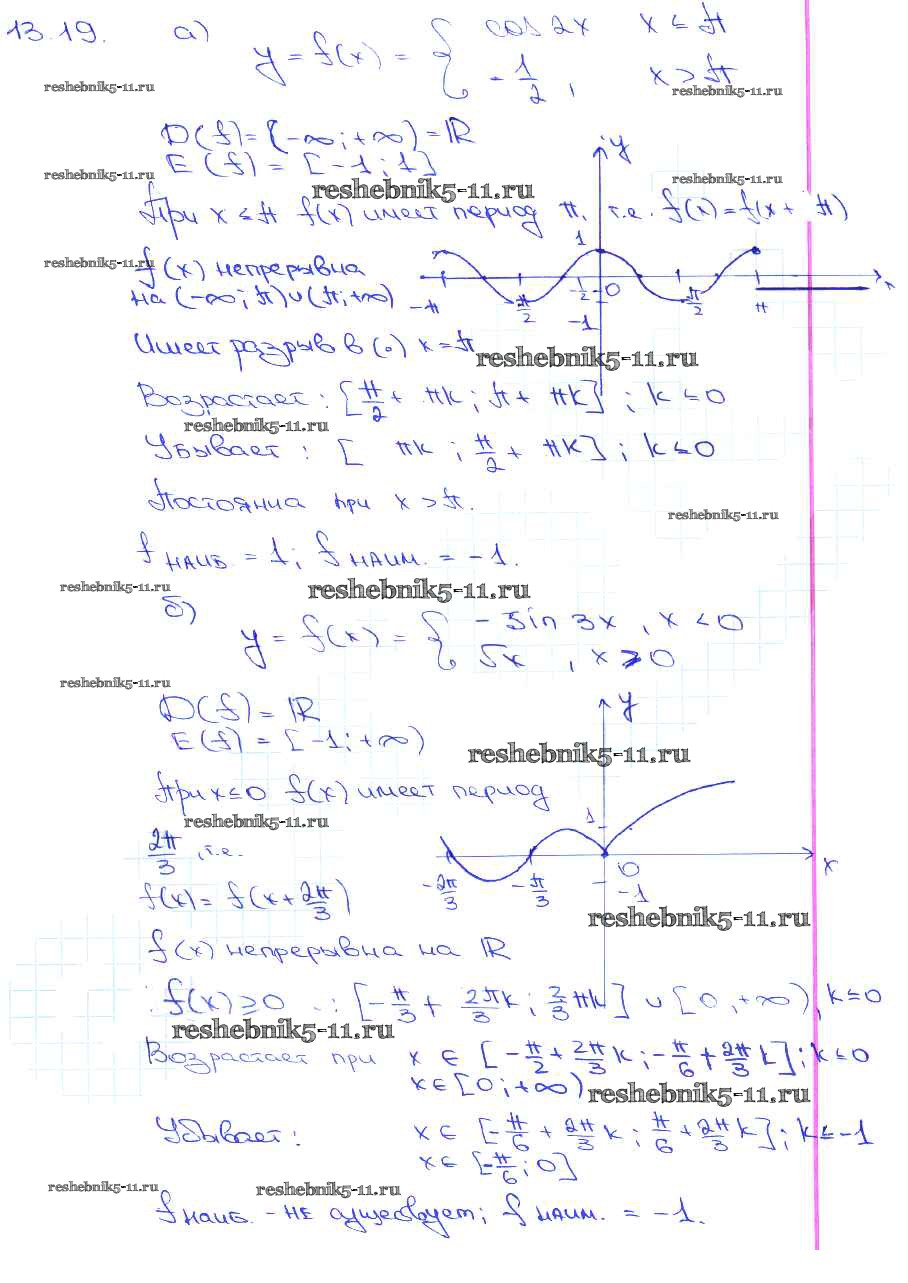 13.19. а) y = f(x) = { cos 2x x ≤ π
- 1/2 , x > π
reshebnik5-11.ru reshebnik5-11.ru
D(f) = (-∞; +∞) = ℝ
E(f) = [-1; 1]
y
reshebnik5-11.ru reshebnik5-11.ru reshebnik5-11.ru
При x ≤ π f(x) имеет период π, т.е. f(x) = f(x + π)
1
reshebnik5-11.ru
f(x) непрерывна
на (-∞; π) ∪ (π; +∞)
-π π/2 -1/2 0 -1 π/2 π x
Имеет разрыв в (·) x = π
reshebnik5-11.ru
Возрастает: [π/2 + πk; π + πk]; k ≤ 0
reshebnik5-11.ru
Убывает: [ πk; π/2 + πk]; k ≤ 0
Постоянна при x > π.
reshebnik5-11.ru
f наиб. = 1; f наим. = -1.
reshebnik5-11.ru reshebnik5-11.ru
б) y = f(x) = { - sin 3x, x < 0
√x , x ≥ 0
reshebnik5-11.ru
D(f) = ℝ
E(f) = [-1; +∞)
y
reshebnik5-11.ru
При x ≤ 0 f(x) имеет период
reshebnik5-11.ru
1
2π/3, т.е.
f(x) = f(x + 2π/3)
-2π/3 -π/3 0 -1 x
reshebnik5-11.ru
f(x) непрерывна на ℝ
f(x) ≥ 0 : [-π/3 + 2πk/3; 2/3 πk] ∪ [0, +∞), k ≤ 0
reshebnik5-11.ru
Возрастает при x ∈ [-π/2 + 2π/3 k; -π/6 + 2π/3 k]; k ≤ 0
x ∈ [0; +∞)
reshebnik5-11.ru
Убывает: x ∈ [-π/6 + 2π/3 k; π/6 + 2π/3 k]; k ≤ -1
x ∈ [-π/6; 0]
reshebnik5-11.ru reshebnik5-11.ru
f наиб. - не существует; f наим. = -1.